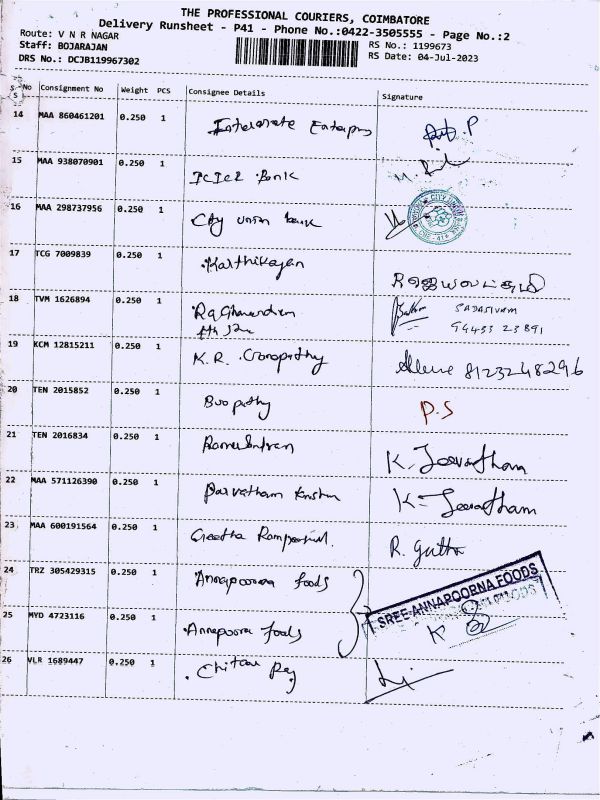 THE PROFESSIONAL COURIERS, COIMBATORE
Delivery Runsheet - P41 - Phone No.:0422-3505555 - Page No.:2
Route: V N R NAGAR
RS No.: 1199673
Staff: BOJARAJAN
RS Date: 04-Jul-2023
DRS No.: DCJB119967302
S No Consignment No Weight PCS Consignee Details Signature
14 MAA 860461201 0.250 1
15 MAA 938070901 0.250 1 ICICI Bank
16 MAA 298737956 0.250 1 City union bank
17 TCG 7009839 0.250 1 Karthikayan
18 TVM 1626894 0.250 1 SADASIVAM
94433 23891
19 KCM 12815211 0.250 1 K.R. 8123248296
20 TEN 2015852 0.250 1 Boopathy P.S
21 TEN 2016834 0.250 1 K. Jeevartham
22 MAA 571126390 0.250 1 Parvatham K. Jeevartham
23 MAA 600191564 0.250 1 Geetha R. Guttu
24 TRZ 305429315 0.250 1 Annapoorna foods
SREE ANNAPOORNA FOODS
25 MYD 4723116 0.250 1 Annapoorna foods
26 VLR 1689447 0.250 1